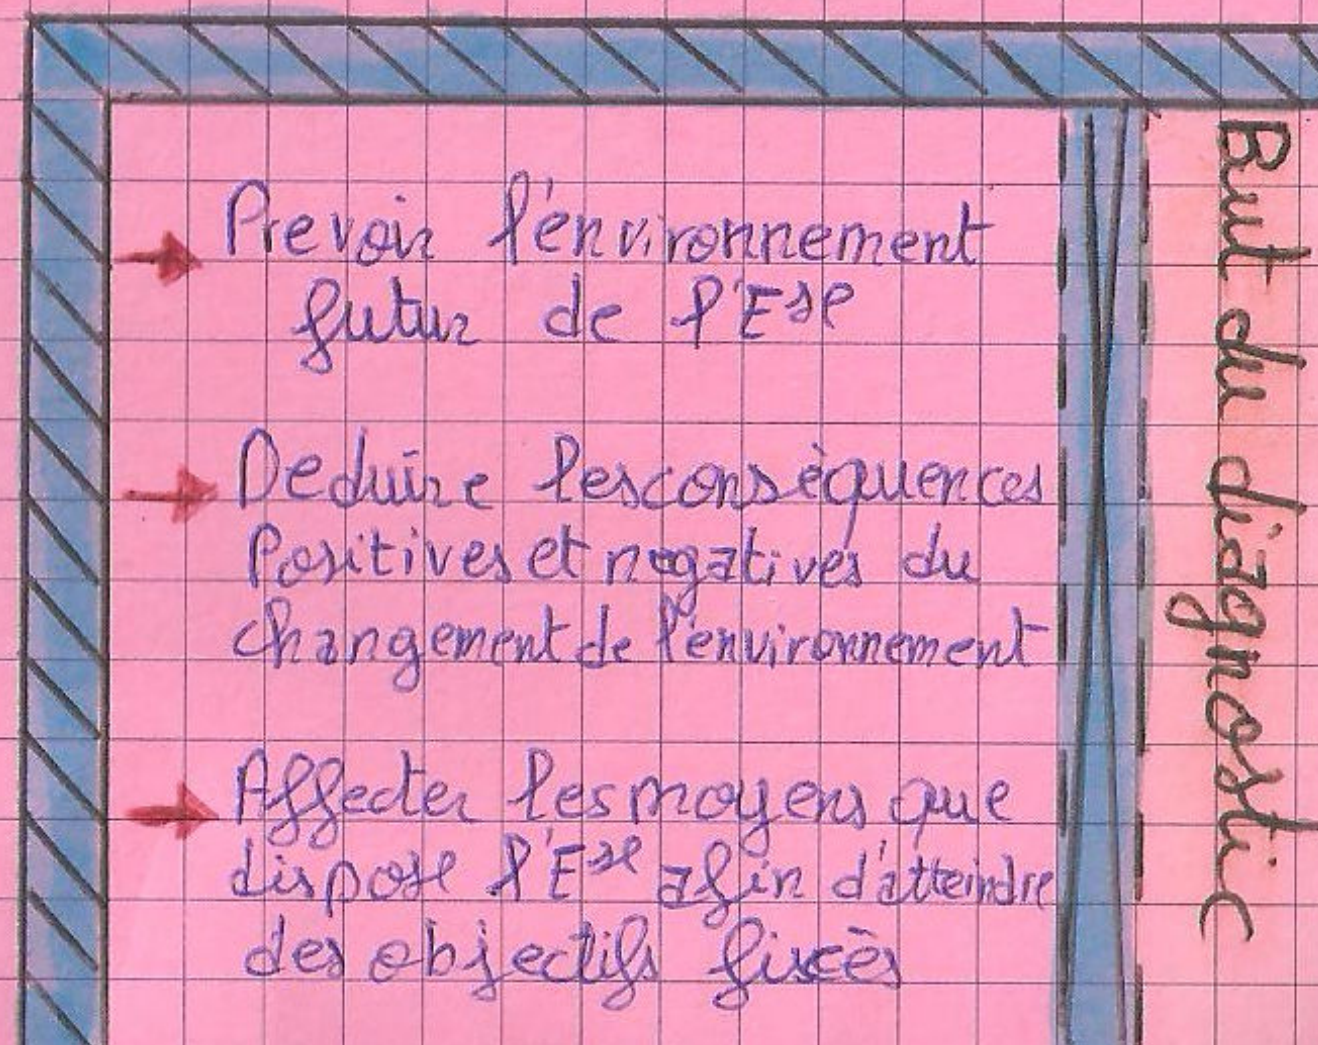 But du diagnostic
Prevoir l'environnement
futur de l'Ese
Deduire les conséquences
Positives et negatives du
changement de l'environnement
Affecter les moyens que
dispose l'Ese afin d'atteindre
des objectifs fixcès